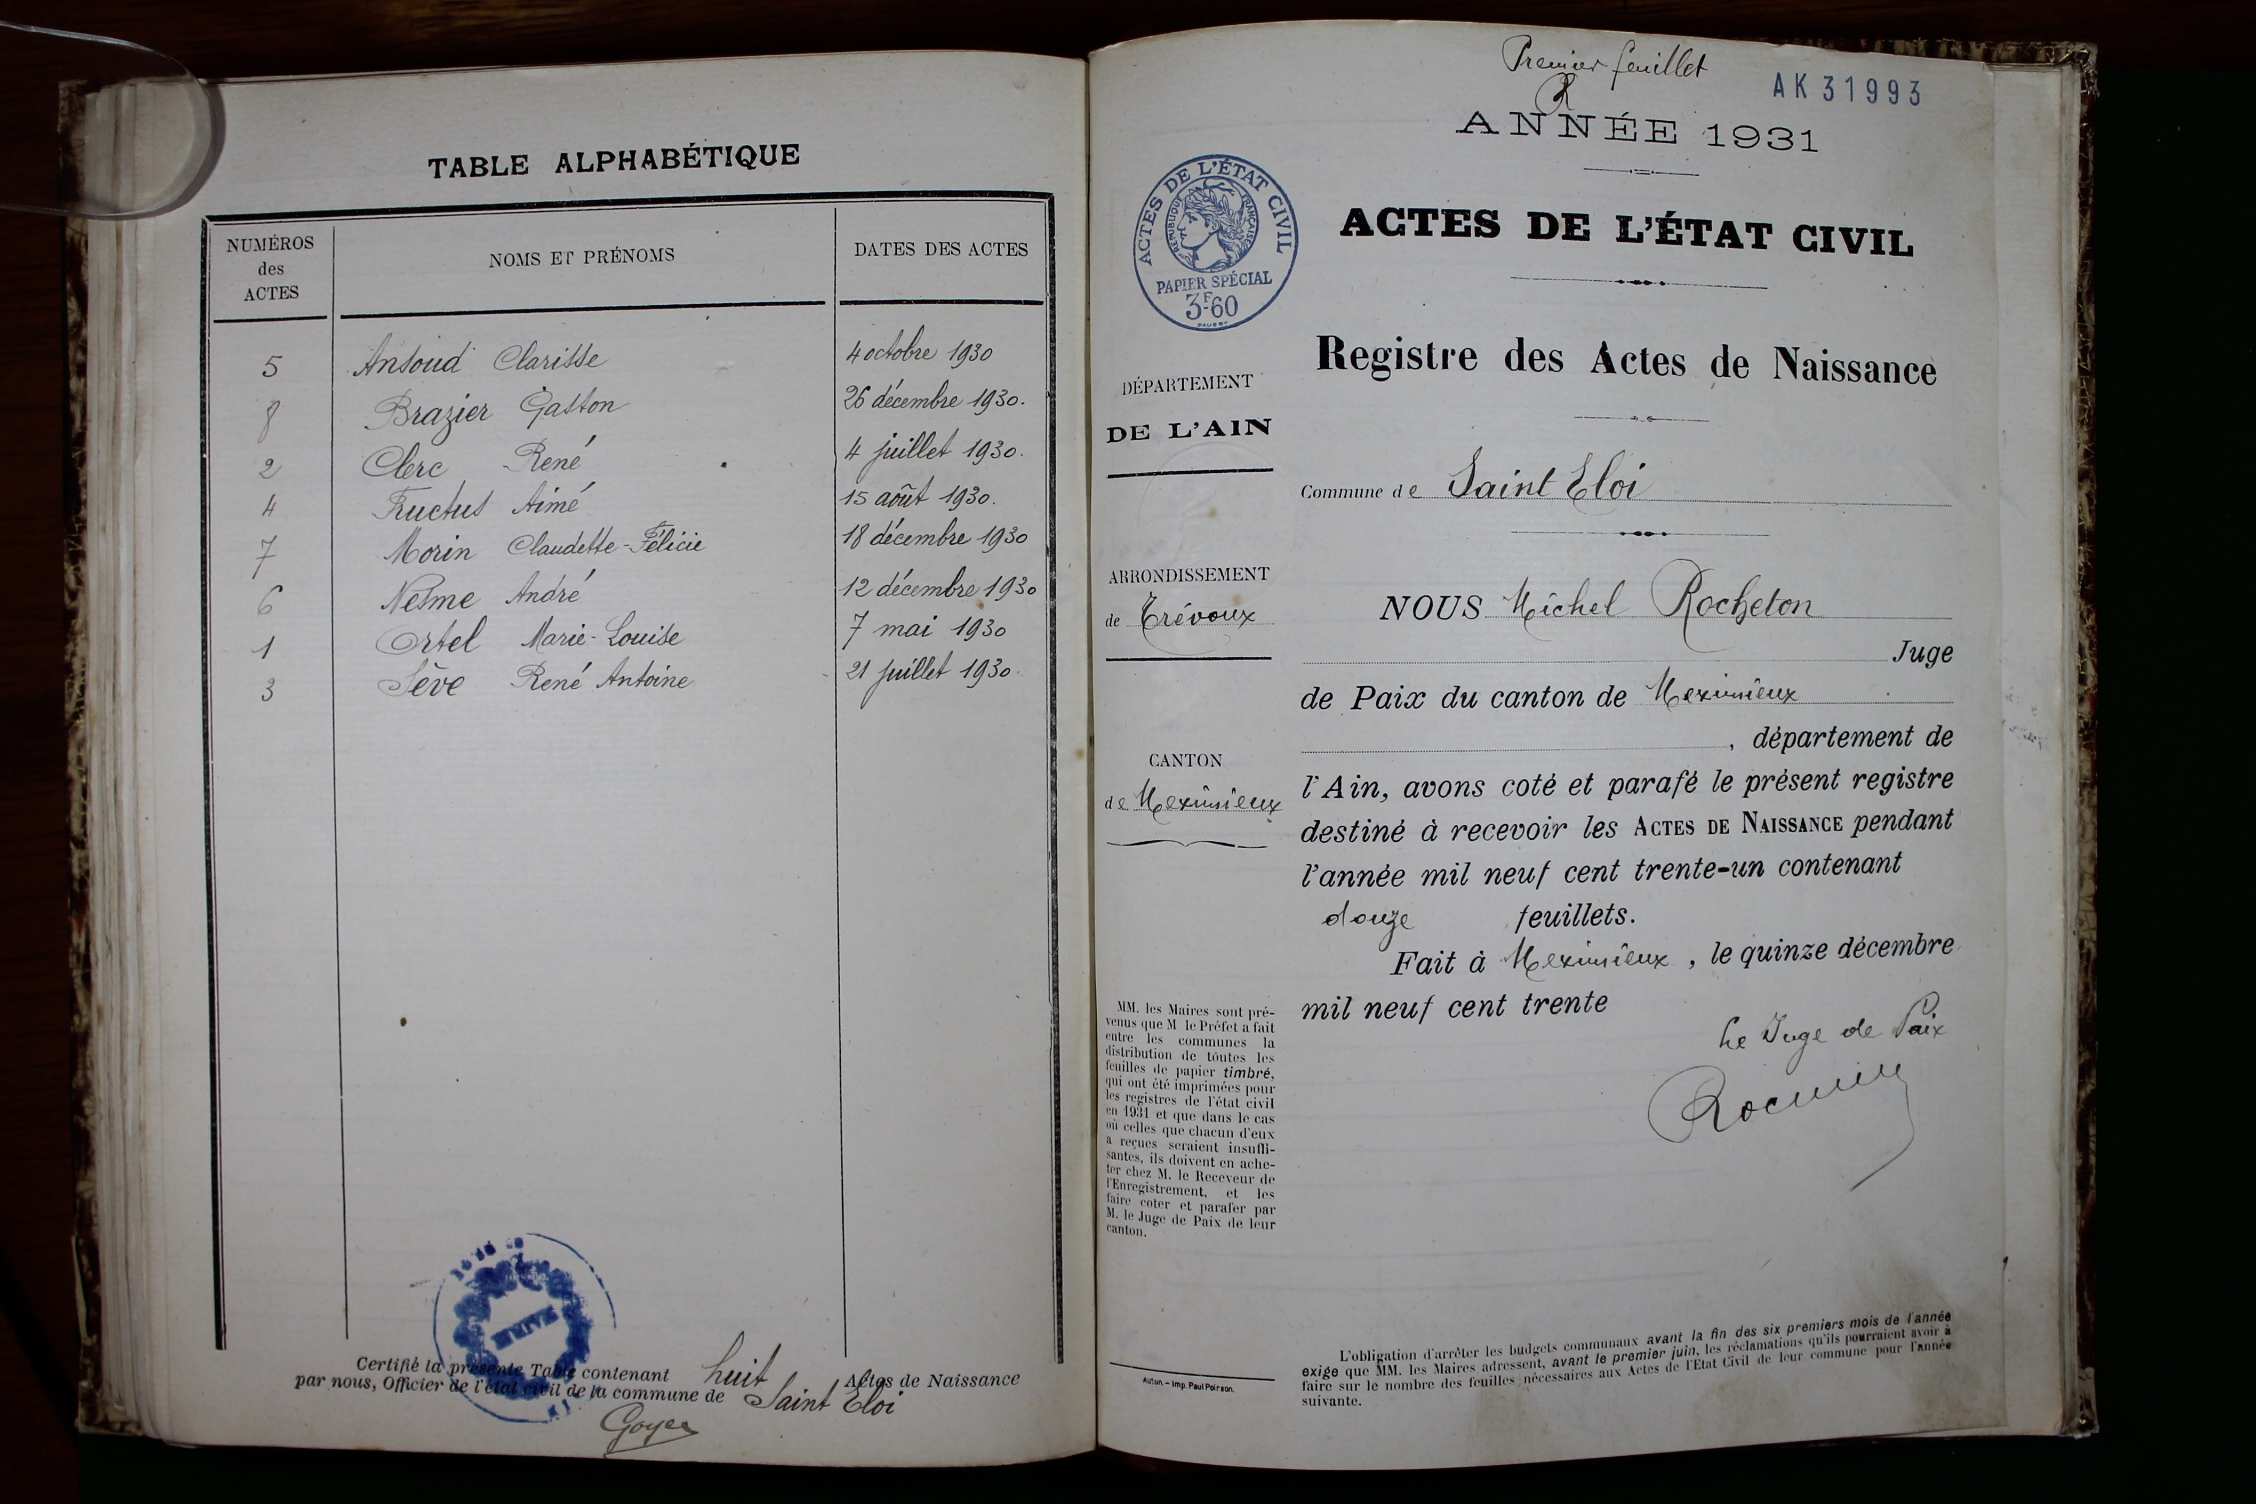 TABLE ALPHABÉTIQUE
NUMÉROS des ACTES NOMS ET PRÉNOMS DATES DES ACTES
5 Ansoud Clarisse 4 octobre 1930
8 Brazier Gaston 26 décembre 1930.
2 Clerc René 4 juillet 1930.
4 Fructus Aimé 15 août 1930.
7 Morin Claudette-Félicie 18 décembre 1930
6 Nesme André 12 décembre 1930
1 Ortel Marie-Louise 7 mai 1930
3 Sève René Antoine 21 juillet 1930.
MAIRIE
Certifié la présente Table contenant huit Actes de Naissance
par nous, Officier de l'état civil de la commune de Saint Eloi
Goyer
Premier feuillet
AK 31993
ANNÉE 1931
ACTES DE L'ÉTAT CIVIL
RÉPUBLIQUE FRANÇAISE
PAPIER SPÉCIAL
3F60
ACTES DE L'ÉTAT CIVIL
Registre des Actes de Naissance
DÉPARTEMENT
DE L'AIN
Commune de Saint Eloi
ARRONDISSEMENT
de Trévoux
CANTON
de Meximieux
NOUS Michel Rocheton
Juge
de Paix du canton de Meximieux
, département de
l'Ain, avons coté et parafé le présent registre
destiné à recevoir les ACTES DE NAISSANCE pendant
l'année mil neuf cent trente-un contenant
douze feuillets.
Fait à Meximieux, le quinze décembre
mil neuf cent trente
Le Juge de Paix
MM. les Maires sont pré-
venus que M le Préfet a fait
entre les communes la
distribution de toutes les
feuilles de papier timbré,
qui ont été imprimées pour
les registres de l'état civil
en 1931 et que dans le cas
où celles que chacun d'eux
a reçues seraient insuffi-
santes, ils doivent en ache-
ter chez M. le Receveur de
l'Enregistrement, et les
faire coter et parafer par
M. le Juge de Paix de leur
canton.
Autun. – Imp. Paul Poirson.
L'obligation d'arrêter les budgets communaux avant la fin des six premiers mois de l'année
exige que MM. les Maires adressent, avant le premier juin, les réclamations qu'ils pourraient avoir à
faire sur le nombre des feuilles nécessaires aux Actes de l'Etat Civil de leur commune pour l'année
suivante.